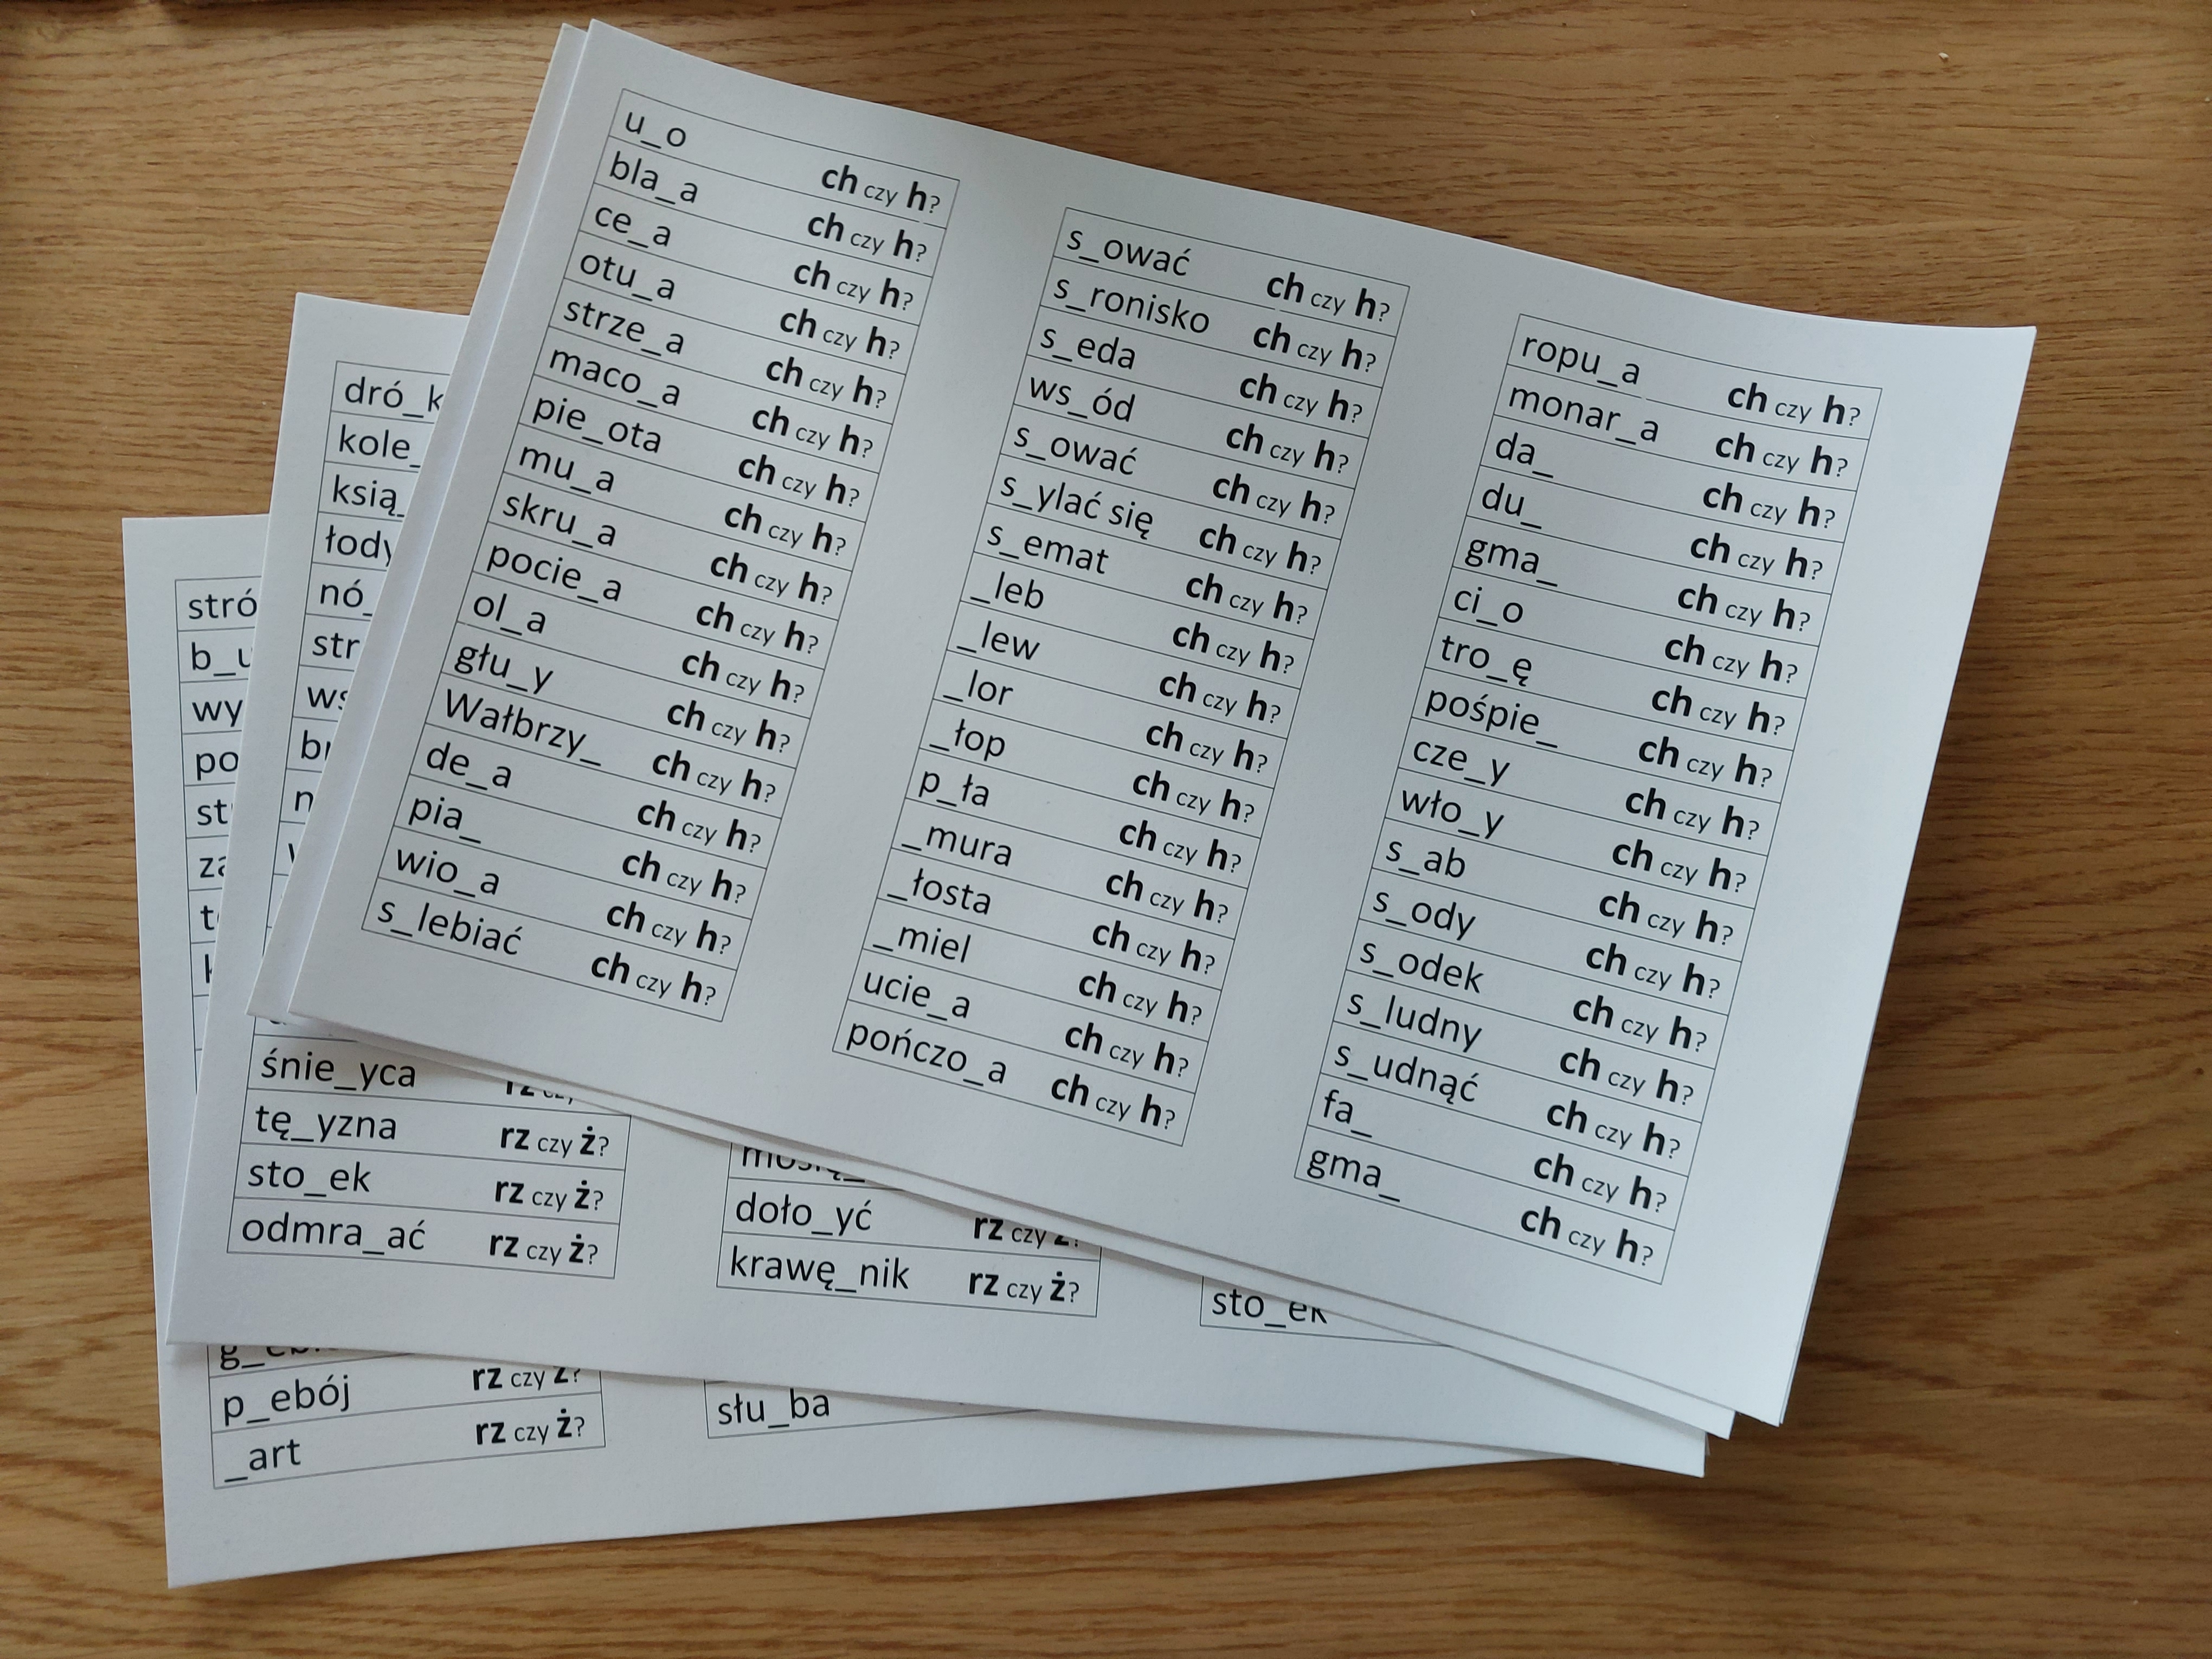 u_o ch czy h?
bla_a ch czy h?
ce_a ch czy h?
otu_a ch czy h?
strze_a ch czy h?
maco_a ch czy h?
pie_ota ch czy h?
mu_a ch czy h?
skru_a ch czy h?
pocie_a ch czy h?
ol_a ch czy h?
głu_y ch czy h?
Wałbrzy_ ch czy h?
de_a ch czy h?
pia_ ch czy h?
wio_a ch czy h?
s_lebiać ch czy h?
s_ować ch czy h?
s_ronisko ch czy h?
s_eda ch czy h?
ws_ód ch czy h?
s_ować ch czy h?
s_ylać się ch czy h?
s_emat ch czy h?
_leb ch czy h?
_lew ch czy h?
_lor ch czy h?
_łop ch czy h?
p_ła ch czy h?
_mura ch czy h?
_łosta ch czy h?
_miel ch czy h?
ucie_a ch czy h?
pończo_a ch czy h?
ropu_a ch czy h?
monar_a ch czy h?
da_ ch czy h?
du_ ch czy h?
gma_ ch czy h?
ci_o ch czy h?
tro_ę ch czy h?
pośpie_ ch czy h?
cze_y ch czy h?
wło_y ch czy h?
s_ab ch czy h?
s_ody ch czy h?
s_odek ch czy h?
s_ludny ch czy h?
s_udnąć ch czy h?
fa_ ch czy h?
gma_ ch czy h?
dró_k
kole_
ksią_
łody
nó_
str
ws
śnie_yca
tę_yzna rz czy ż?
sto_ek rz czy ż?
odmra_ać rz czy ż?
doło_yć rz czy ż?
krawę_nik rz czy ż?
sto_ek
stró
b_u
wy
po
st
p_ebój rz czy ż?
_art rz czy ż?
słu_ba